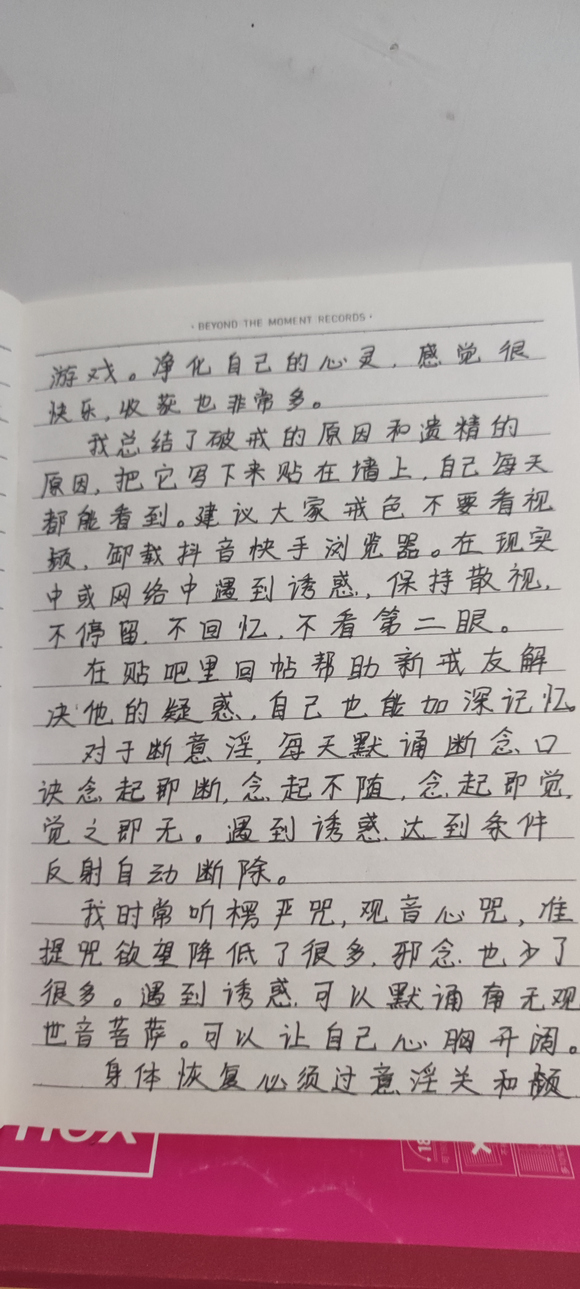 · BEYOND THE MOMENT RECORDS ·
游戏。净化自己的心灵，感觉很
快乐，收获也非常多。
我总结了破戒的原因和遗精的
原因，把它写下来贴在墙上，自己每天
都能看到。建议大家戒色不要看视
频，卸载抖音快手浏览器。在现实
中或网络中遇到诱惑，保持散视，
不停留，不回忆，不看第二眼。
在贴吧里回帖帮助新戒友解
决他的疑惑，自己也能加深记忆。
对于断意淫，每天默诵断念口
诀念起即断，念起不随，念起即觉，
觉之即无。遇到诱惑达到条件
反射自动断除。
我时常听楞严咒，观音心咒，准
提咒欲望降低了很多，邪念也少了
很多。遇到诱惑可以默诵南无观
世音菩萨。可以让自己心胸开阔。
身体恢复必须过意淫关和频